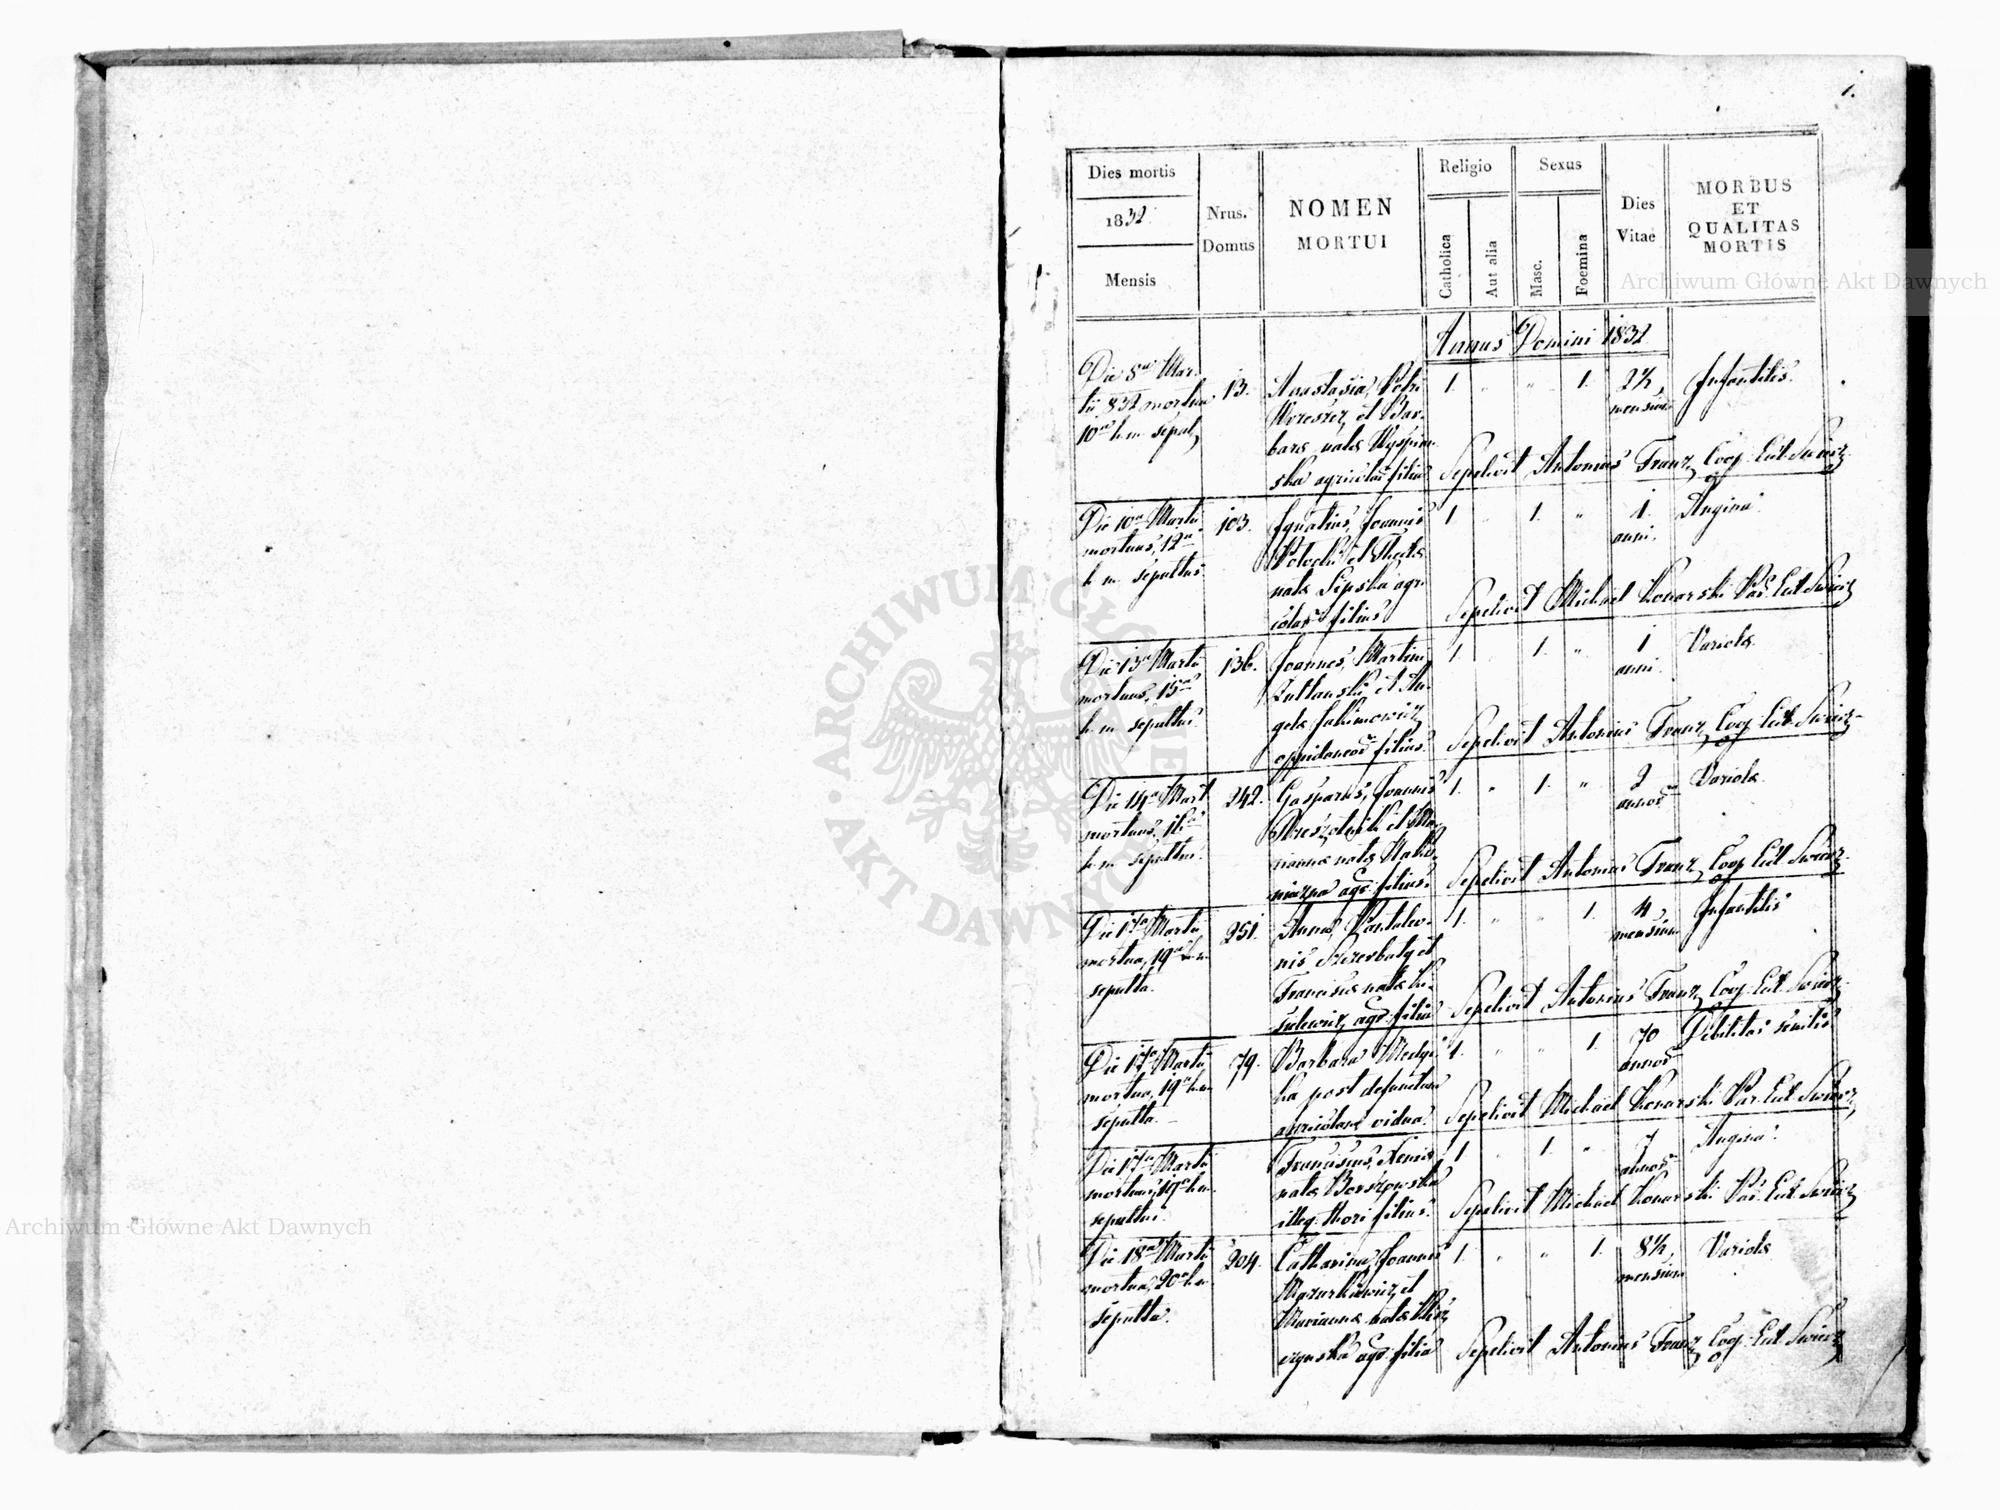 1.
Dies mortis
1832
Mensis
Nrus.
Domus
NOMEN
MORTUI
Religio
Catholica
Aut alia
Sexus
Masc.
Foemina
Dies
Vitae
MORBUS
ET
QUALITAS
MORTIS
Annus Domini 1832
Die 8va Mar-
tii 832 mortua
10ma h. m. sepul,
13.
Anastasia, Petri
et Bar-
barae natae
agricolar filia
1. „ „ 1.
2½,
mensium
Infantilis.
Sepelivit Antonius Franz, Coop. Eccl. Swirz.
Die 10a Martii
mortuus, 12a
h. m. sepultus
103.
Ignatius, Joannis
Potocki et Theclae
natae Lipska agri-
colar filius
1. „ 1. „
1.
anni.
Angina.
Sepelivit Michael Konarski Par. Eccl. Swirz
Die 13a Martii
mortuus, 15a
h. m. sepultus.
136.
Joannes, Martini
et An-
gelae Jakimowicz
oppidaneor filius.
1. „ 1. „
1
anni.
Variolae
Sepelivit Antonius Franz, Coop. Eccl. Swirz
Die 14a Mart.
mortuus, 16a
h. m. sepultus.
242.
Gasparus, Joannis
et Ma-
riannae natae
agr. filius.
1. „ 1. „
2
annor
Variolae
Sepelivit Antonius Franz, Coop. Eccl. Swirz
Die 17a Martii
mortua, 19a h. m.
sepulta.
251.
Anna, Pantaleo-
nis Szczerbaty et
Franciscae natae
agr. filia
1. „ „ 1.
4
mensium
Infantilis
Sepelivit Antonius Franz, Coop. Eccl. Swirz
Die 17a Martii
mortua, 19a h. m.
sepulta.
79.
Barbara
post defunctum
agricolam vidua.
1. „ „ 1.
70
annor
Debilitas senilis
Sepelivit Michael Konarski Par. Eccl. Swirz
Die 17a Martii
mortuus, 19a h. m.
sepultus.
Franciscus, Xeniae
natae Borszowska
illeg. thori filius.
1 „ 1. „
7
annor
Angina.
Sepelivit Michael Konarski Par. Eccl. Swirz
Die 18a Martii
mortua, 20a h. m.
sepulta.
204.
Catharina, Joannis
Mazurkiewicz, et
Mariannae natae
agr. filia
1. „ „ 1.
8½,
mensium
Variolae
Sepelivit Antonius Franz, Coop. Eccl. Swirz
Archiwum Główne Akt Dawnych
ARCHIWUM GŁÓWNE
AKT DAWNYCH
Archiwum Główne Akt Dawnych